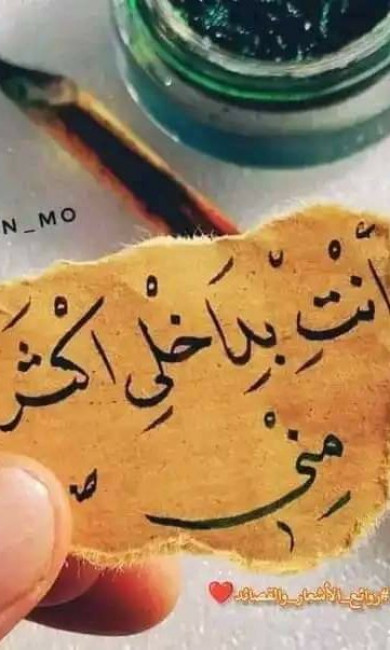 N_MO
أَنْتِ بْدِاخلْي اكْثَر
مِنْي
#روائع_الأشعار_والقصائد❤️